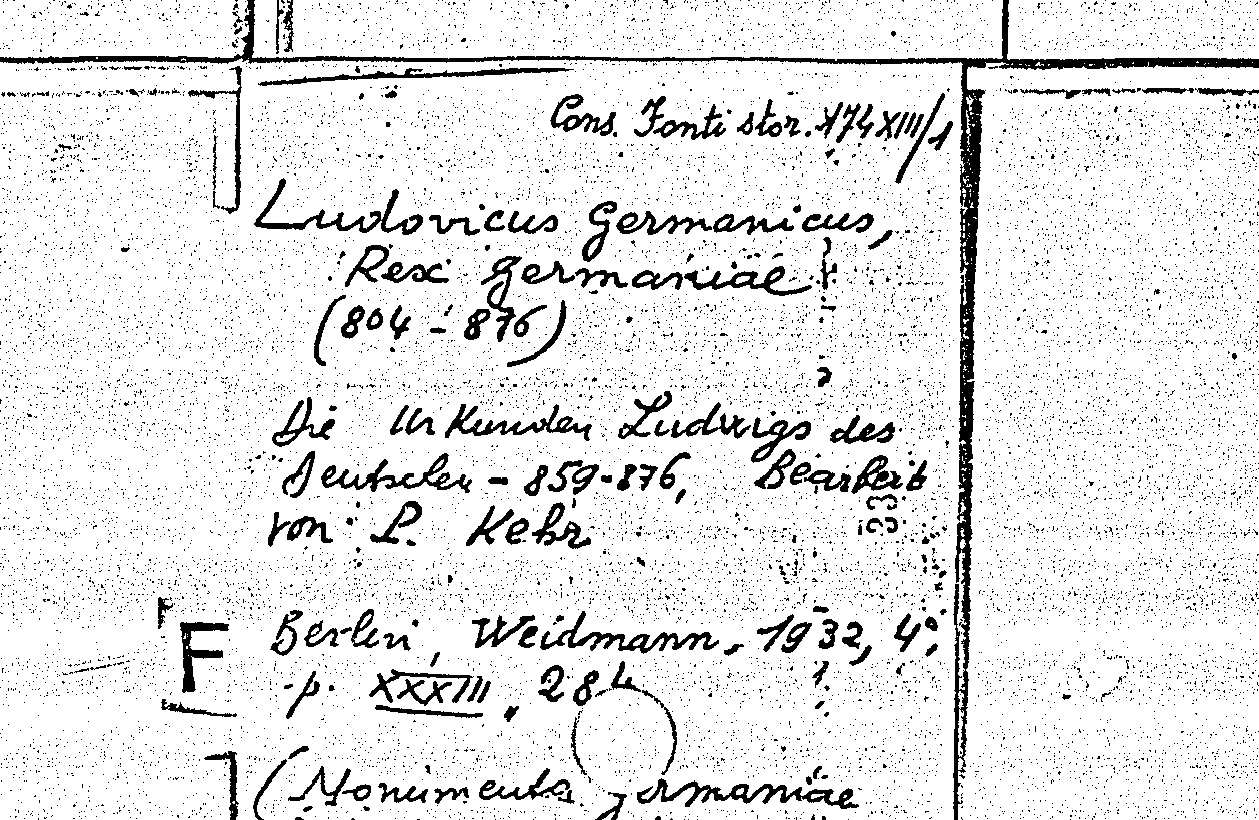 Cons. Fonti stor. 174 XIII/1
Ludovicus Germanicus,
Rex Germaniae
(804 - 876)
Die Urkunden Ludwigs des
Deutschen - 859-876, Bearbeit
von P. Kehr
Berlin, Weidmann, 1932, 4°,
F
p. XXXIII, 284
(Monumenta Germaniae